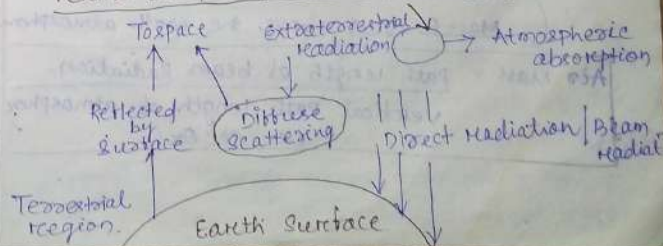 To space
extraterrestrial
radiation
Atmospheric
absorption
Reflected
by
surface
Diffuse
scattering
Direct radiation / Beam
radial
Terrestrial
region.
Earth Surface